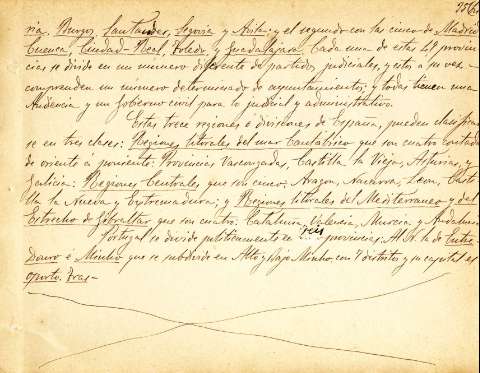 ria, Burgos, Santander, Segovia y Avila; y el segundo con las cinco de Madrid
Cuenca, Ciudad-Real, Toledo y Guadalajara. Cada una de estas 49 provin-
cias se divide en un número diferente de partidos judiciales, y estos a su vez-
comprenden un número determinado de ayuntamientos; y todas tienen una
Audiencia y un Gobierno civil para lo judicial y administrativo.
Estas trece regiones ó divisiones de España, pueden clasificar
se en tres clases: Regiones litorales del mar Cantábrico que son cuatro contada
de oriente a poniente: Provincias Vascongadas, Castilla la Vieja, Asturias, y
Galicia: Regiones Centrales que son cinco: Aragon, Navarra, Leon, Casti
lla la Nueva y Extremadura; y Regiones litorales del Mediterraneo y del
Estrecho de Gibraltar que son cuatro: Cataluña, Valencia, Murcia y Andalucia
Portugal se divide politicamente en seis provincias. Al N. la de Entre
Douro é Minho que se subdivide en Alto y Bajo Minho, con 7 distritos y su capital es
Oporto. Tras-